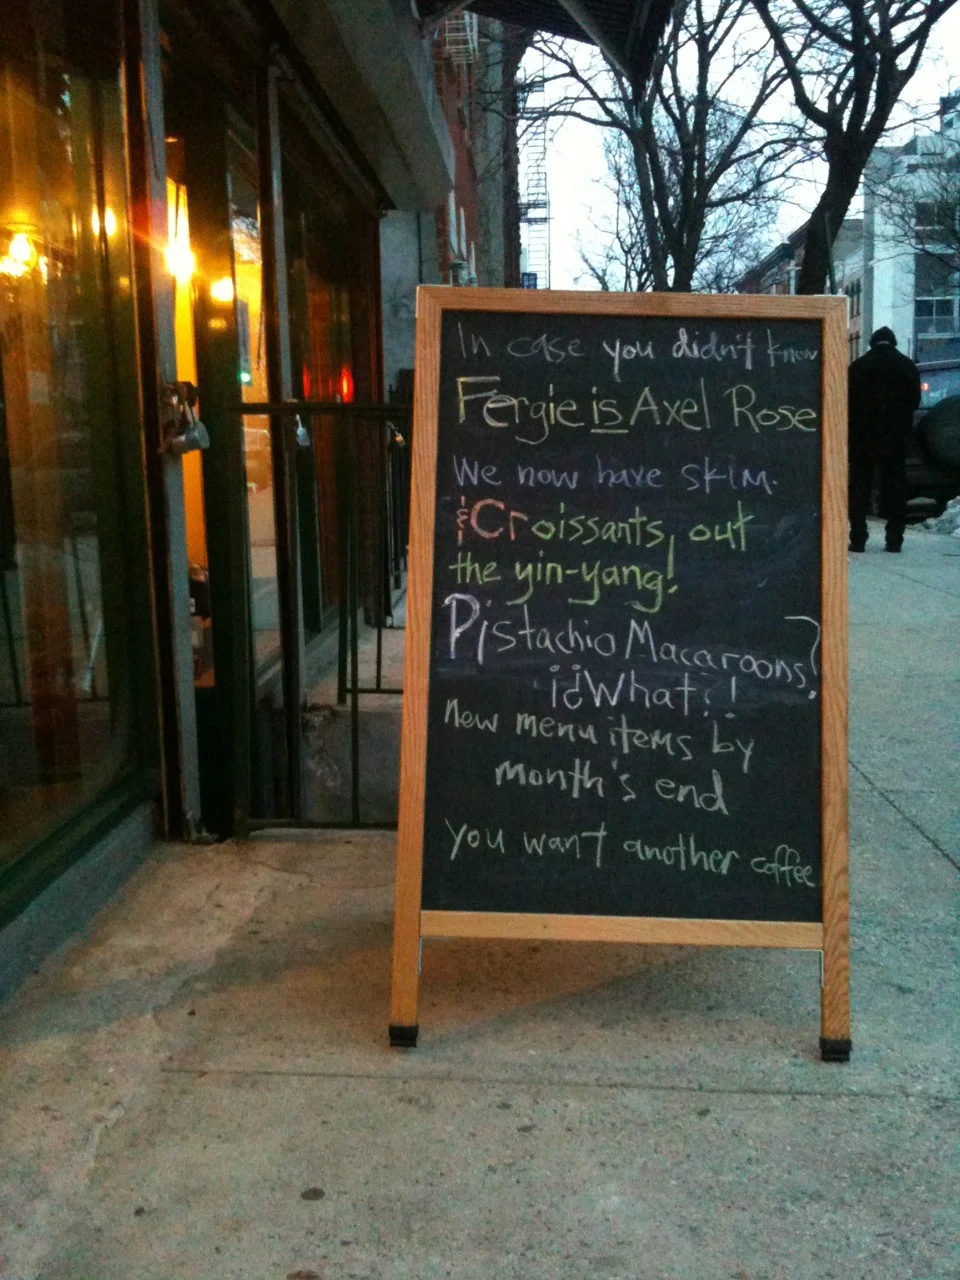 In case you didn't know
Fergie is Axel Rose
We now have skim.
& Croissants, out
the yin-yang!
Pistachio Macaroons?
¡¿What?!
New menu items by
month's end
you want another coffee